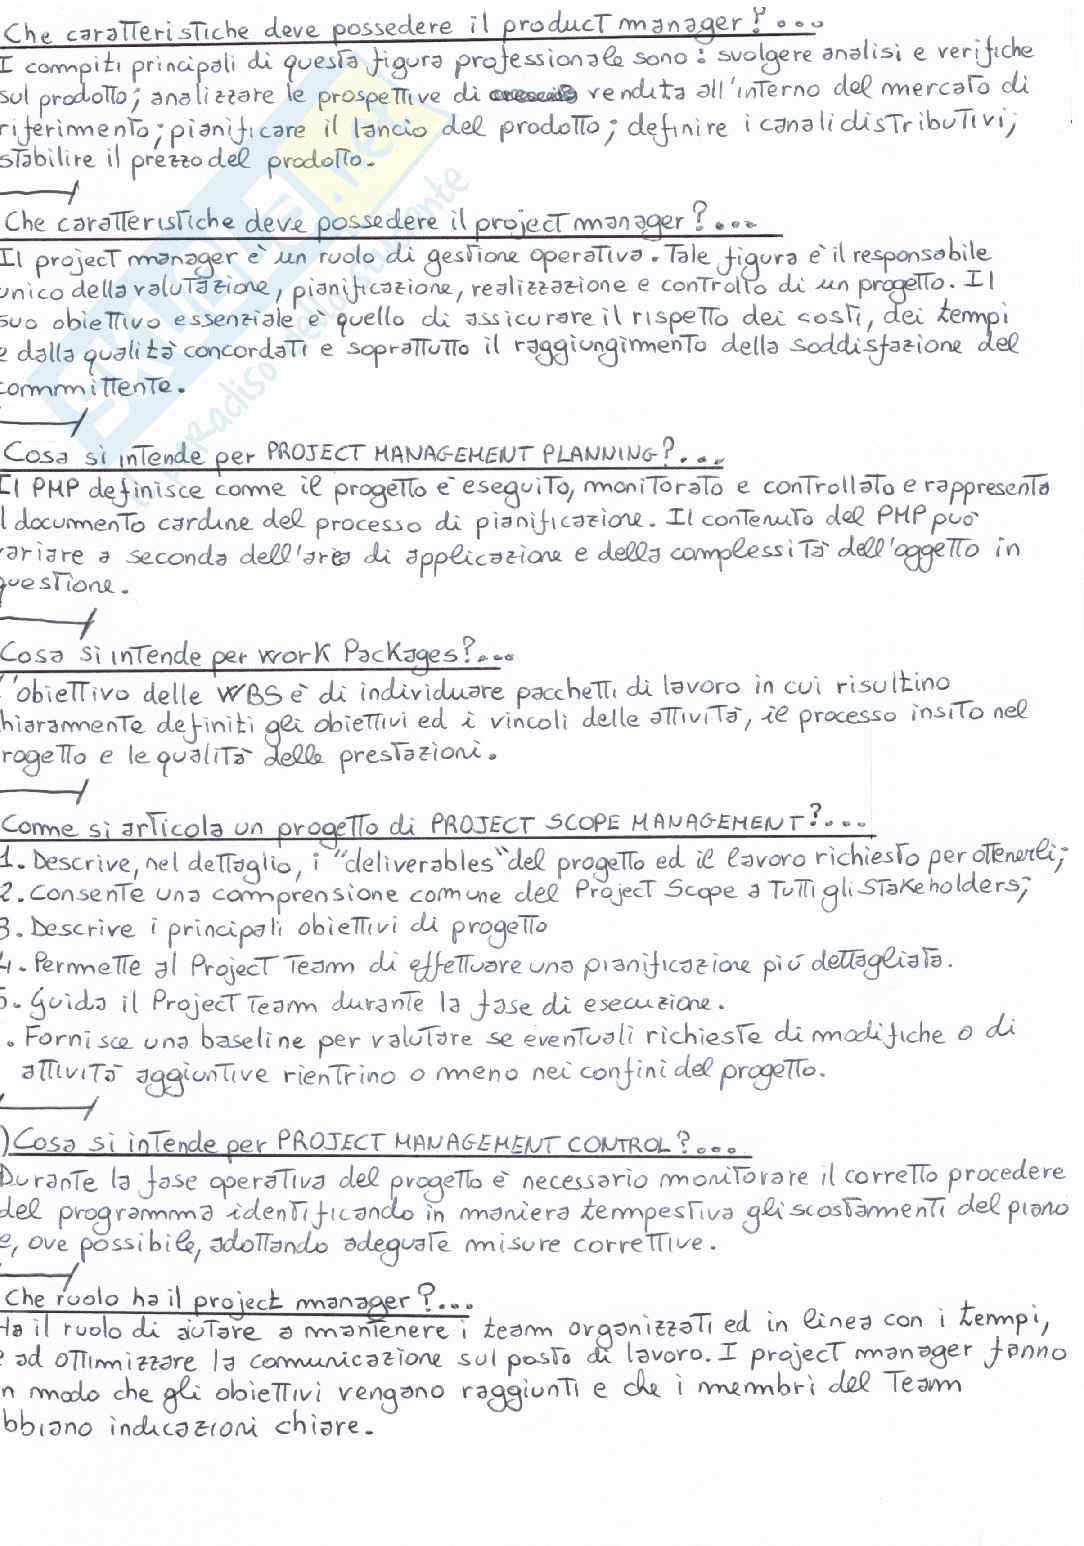 Che caratteristiche deve possedere il product manager?...
I compiti principali di questa figura professionale sono: svolgere analisi e verifiche
sul prodotto; analizzare le prospettive di vendita all'interno del mercato di
riferimento; pianificare il lancio del prodotto; definire i canali distributivi;
stabilire il prezzo del prodotto.
Che caratteristiche deve possedere il project manager?...
Il project manager è un ruolo di gestione operativa. Tale figura è il responsabile
unico della valutazione, pianificazione, realizzazione e controllo di un progetto. Il
suo obiettivo essenziale è quello di assicurare il rispetto dei costi, dei tempi
e dalla qualità concordati e soprattutto il raggiungimento della soddisfazione del
committente.
Cosa si intende per PROJECT MANAGEMENT PLANNING?...
Il PMP definisce come il progetto è eseguito, monitorato e controllato e rappresenta
l documento cardine del processo di pianificazione. Il contenuto del PMP può
variare a seconda dell'area di applicazione e della complessità dell'oggetto in
questione.
Cosa si intende per work Packages?...
L'obiettivo delle WBS è di individuare pacchetti di lavoro in cui risultino
hiaramente definiti gli obiettivi ed i vincoli delle attività, il processo insito nel
rogetto e le qualità delle prestazioni.
Come si articola un progetto di PROJECT SCOPE MANAGEMENT?...
1. Descrive, nel dettaglio, i "deliverables" del progetto ed il lavoro richiesto per ottenerli;
2. Consente una comprensione comune del Project Scope a tutti gli Stakeholders;
3. Descrive i principali obiettivi di progetto
4. Permette al Project Team di effettuare una pianificazione più dettagliata.
5. Guida il Project Team durante la fase di esecuzione.
. Fornisce una baseline per valutare se eventuali richieste di modifiche o di
attività aggiuntive rientrino o meno nei confini del progetto.
) Cosa si intende per PROJECT MANAGEMENT CONTROL?...
Durante la fase operativa del progetto è necessario monitorare il corretto procedere
del programma identificando in maniera tempestiva gli scostamenti del piano
e, ove possibile, adottando adeguate misure correttive.
Che ruolo ha il project manager?...
Ha il ruolo di aiutare a mantenere i team organizzati ed in linea con i tempi,
e ad ottimizzare la comunicazione sul posto di lavoro. I project manager fanno
n modo che gli obiettivi vengano raggiunti e che i membri del Team
bbiano indicazioni chiare.
SKUOLA.net
il paradiso dello studente